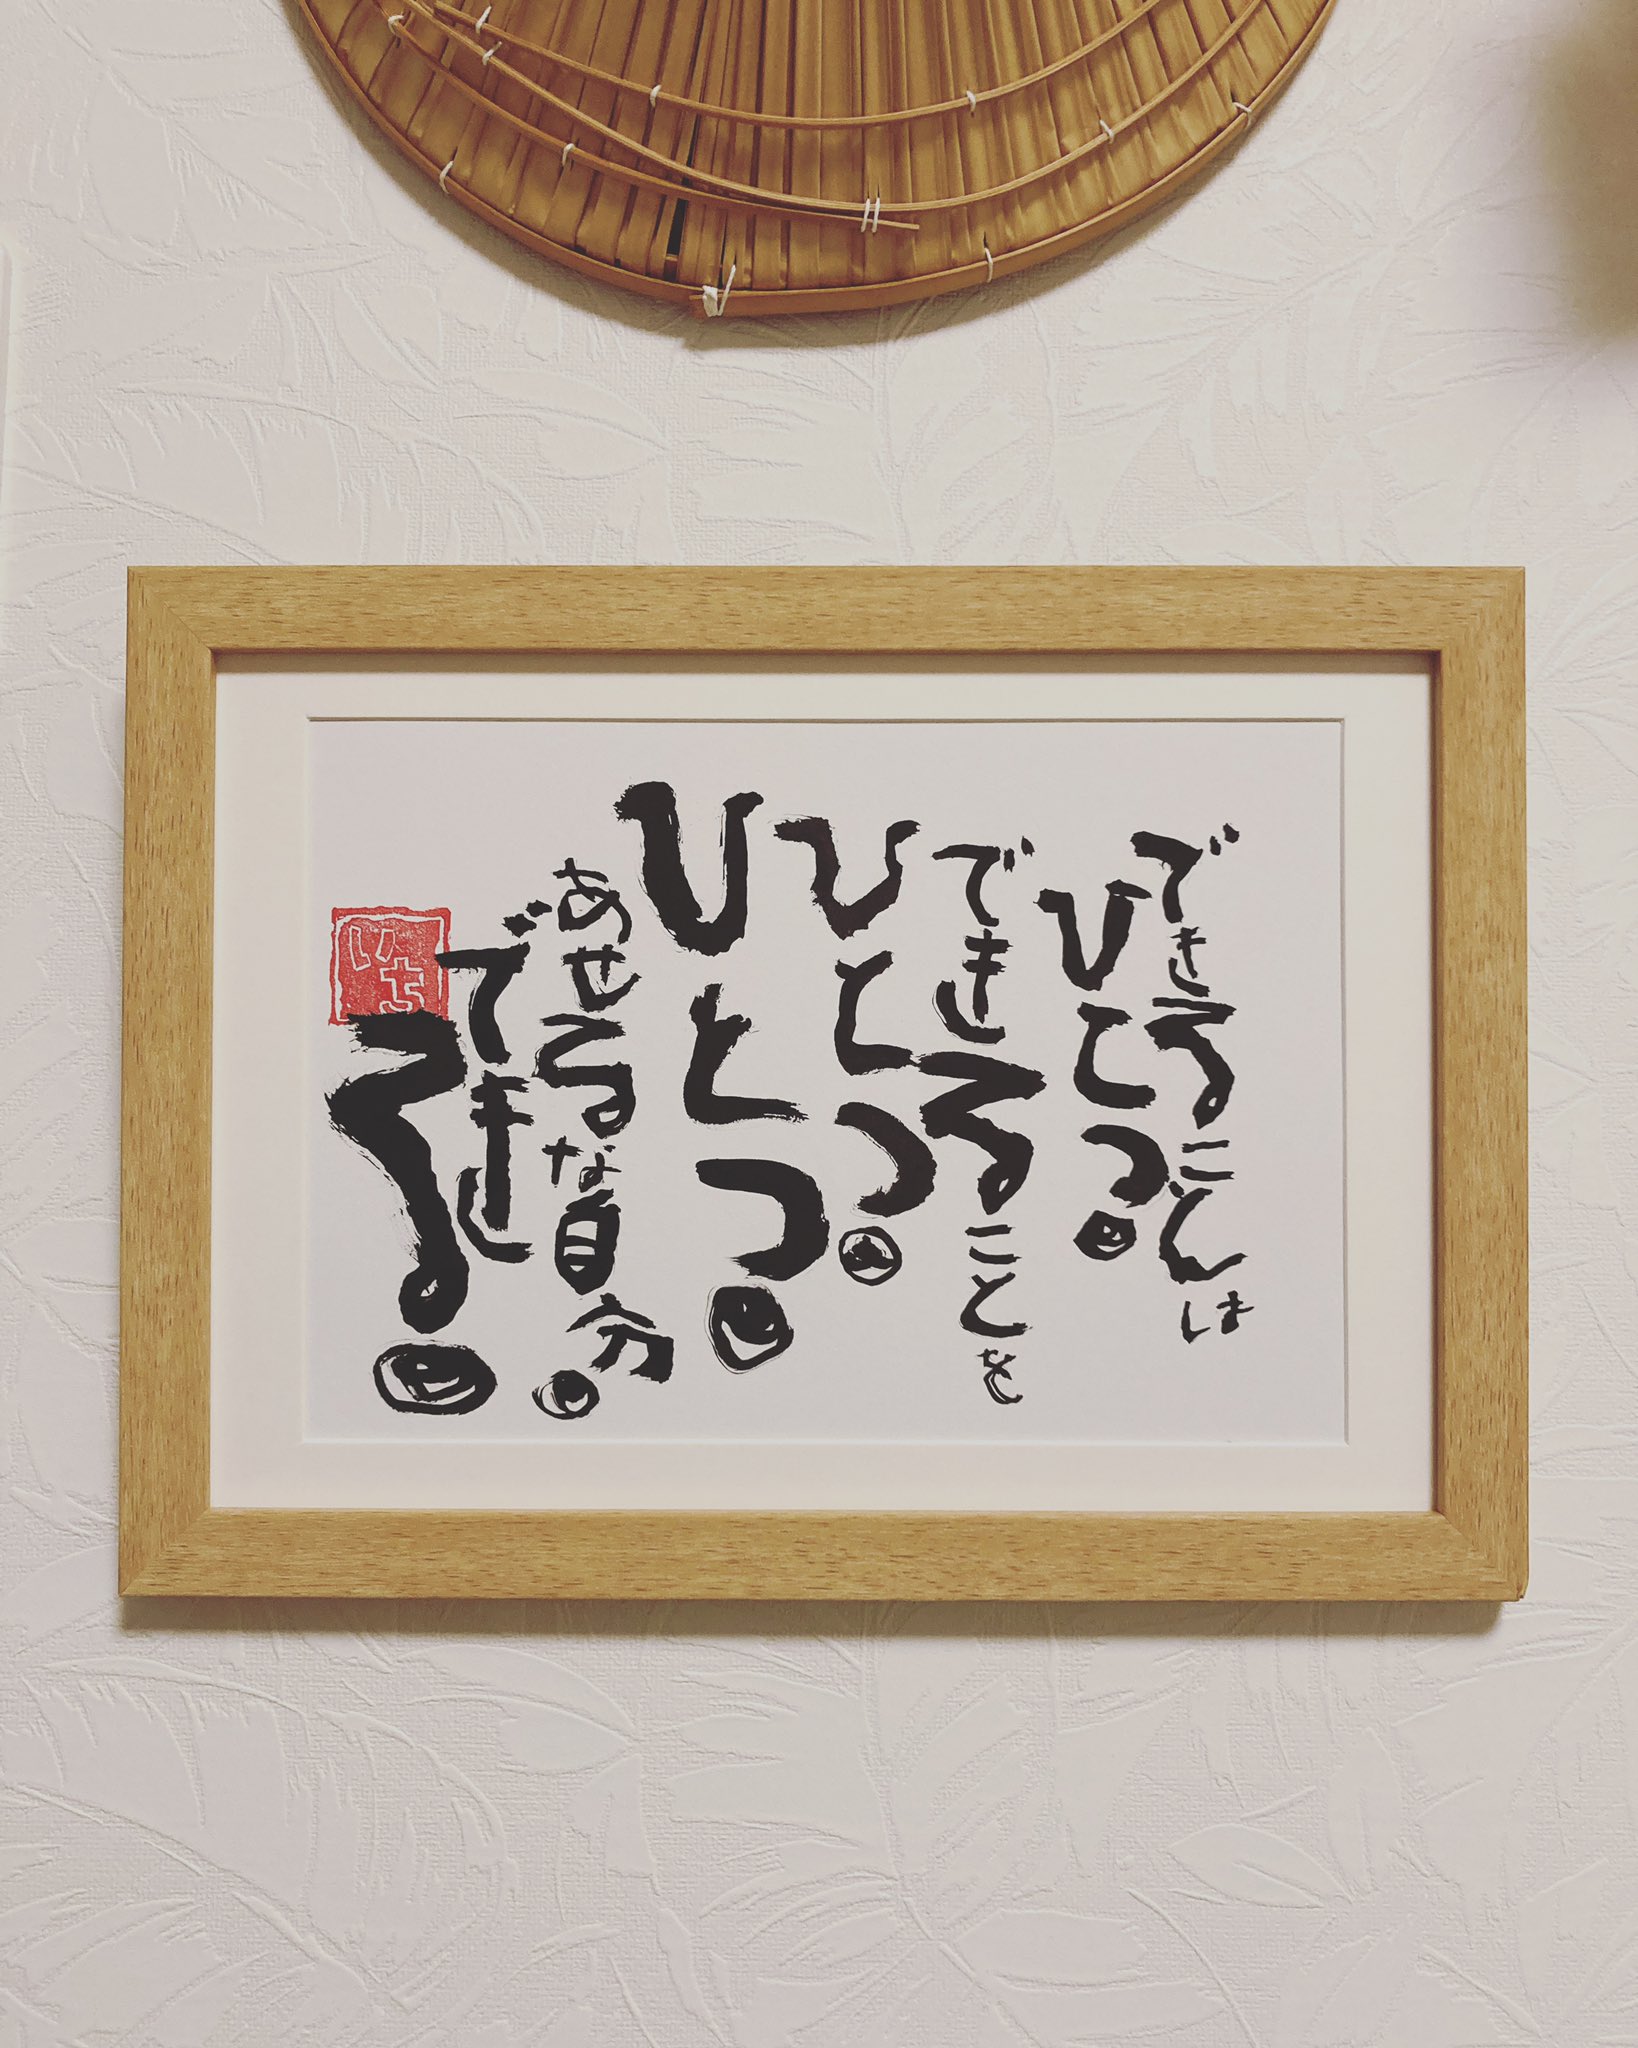 できることは
ひとつ。
できることを
ひとつ。
ひとつ。
あせるな自分。
できる。
いち